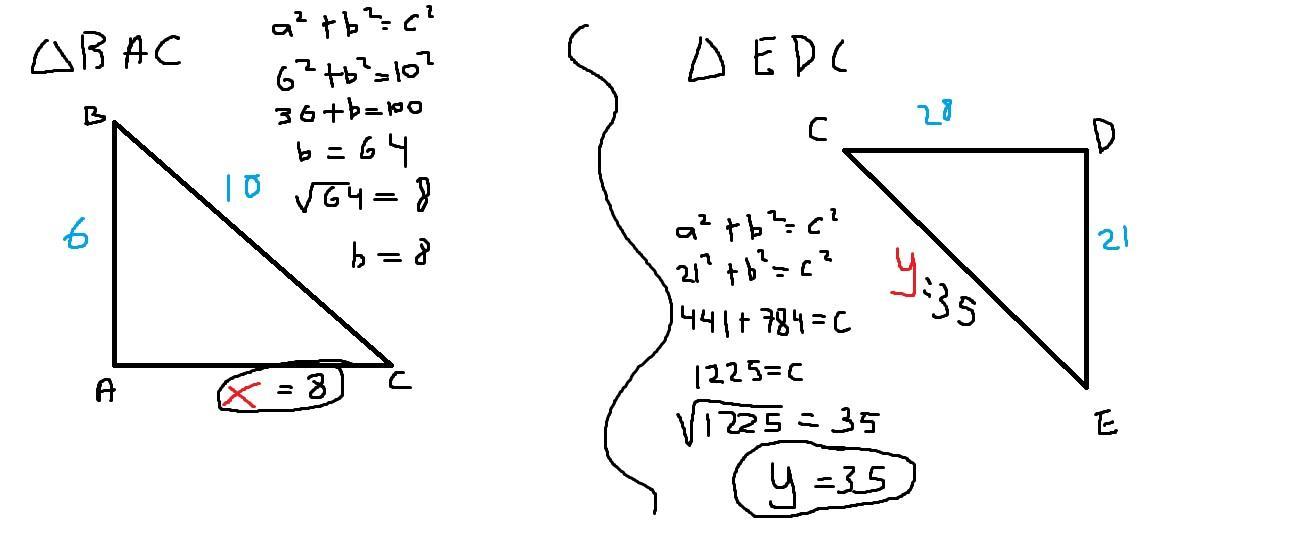 △BAC
a² + b² = c²
6² + b² = 10²
36 + b = 100
b = 64
√64 = 8
b = 8
B
10
6
A
x = 8
C
△ EDC
C
28
D
21
a² + b² = c²
21² + b² = c²
y = 35
441 + 784 = C
1225 = C
√1225 = 35
E
y = 35